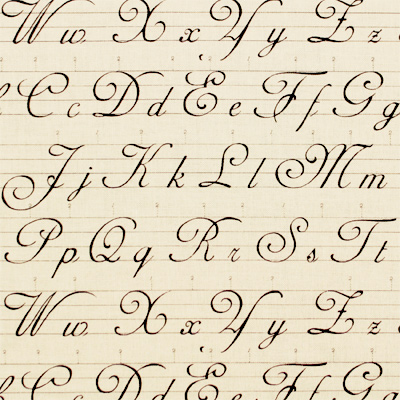 W w X x Y y Z z
C c D d E e F f G g
J j K k L l M m
P p Q q R r S s T t
W w X x Y y Z z
C c D d E e F f G g